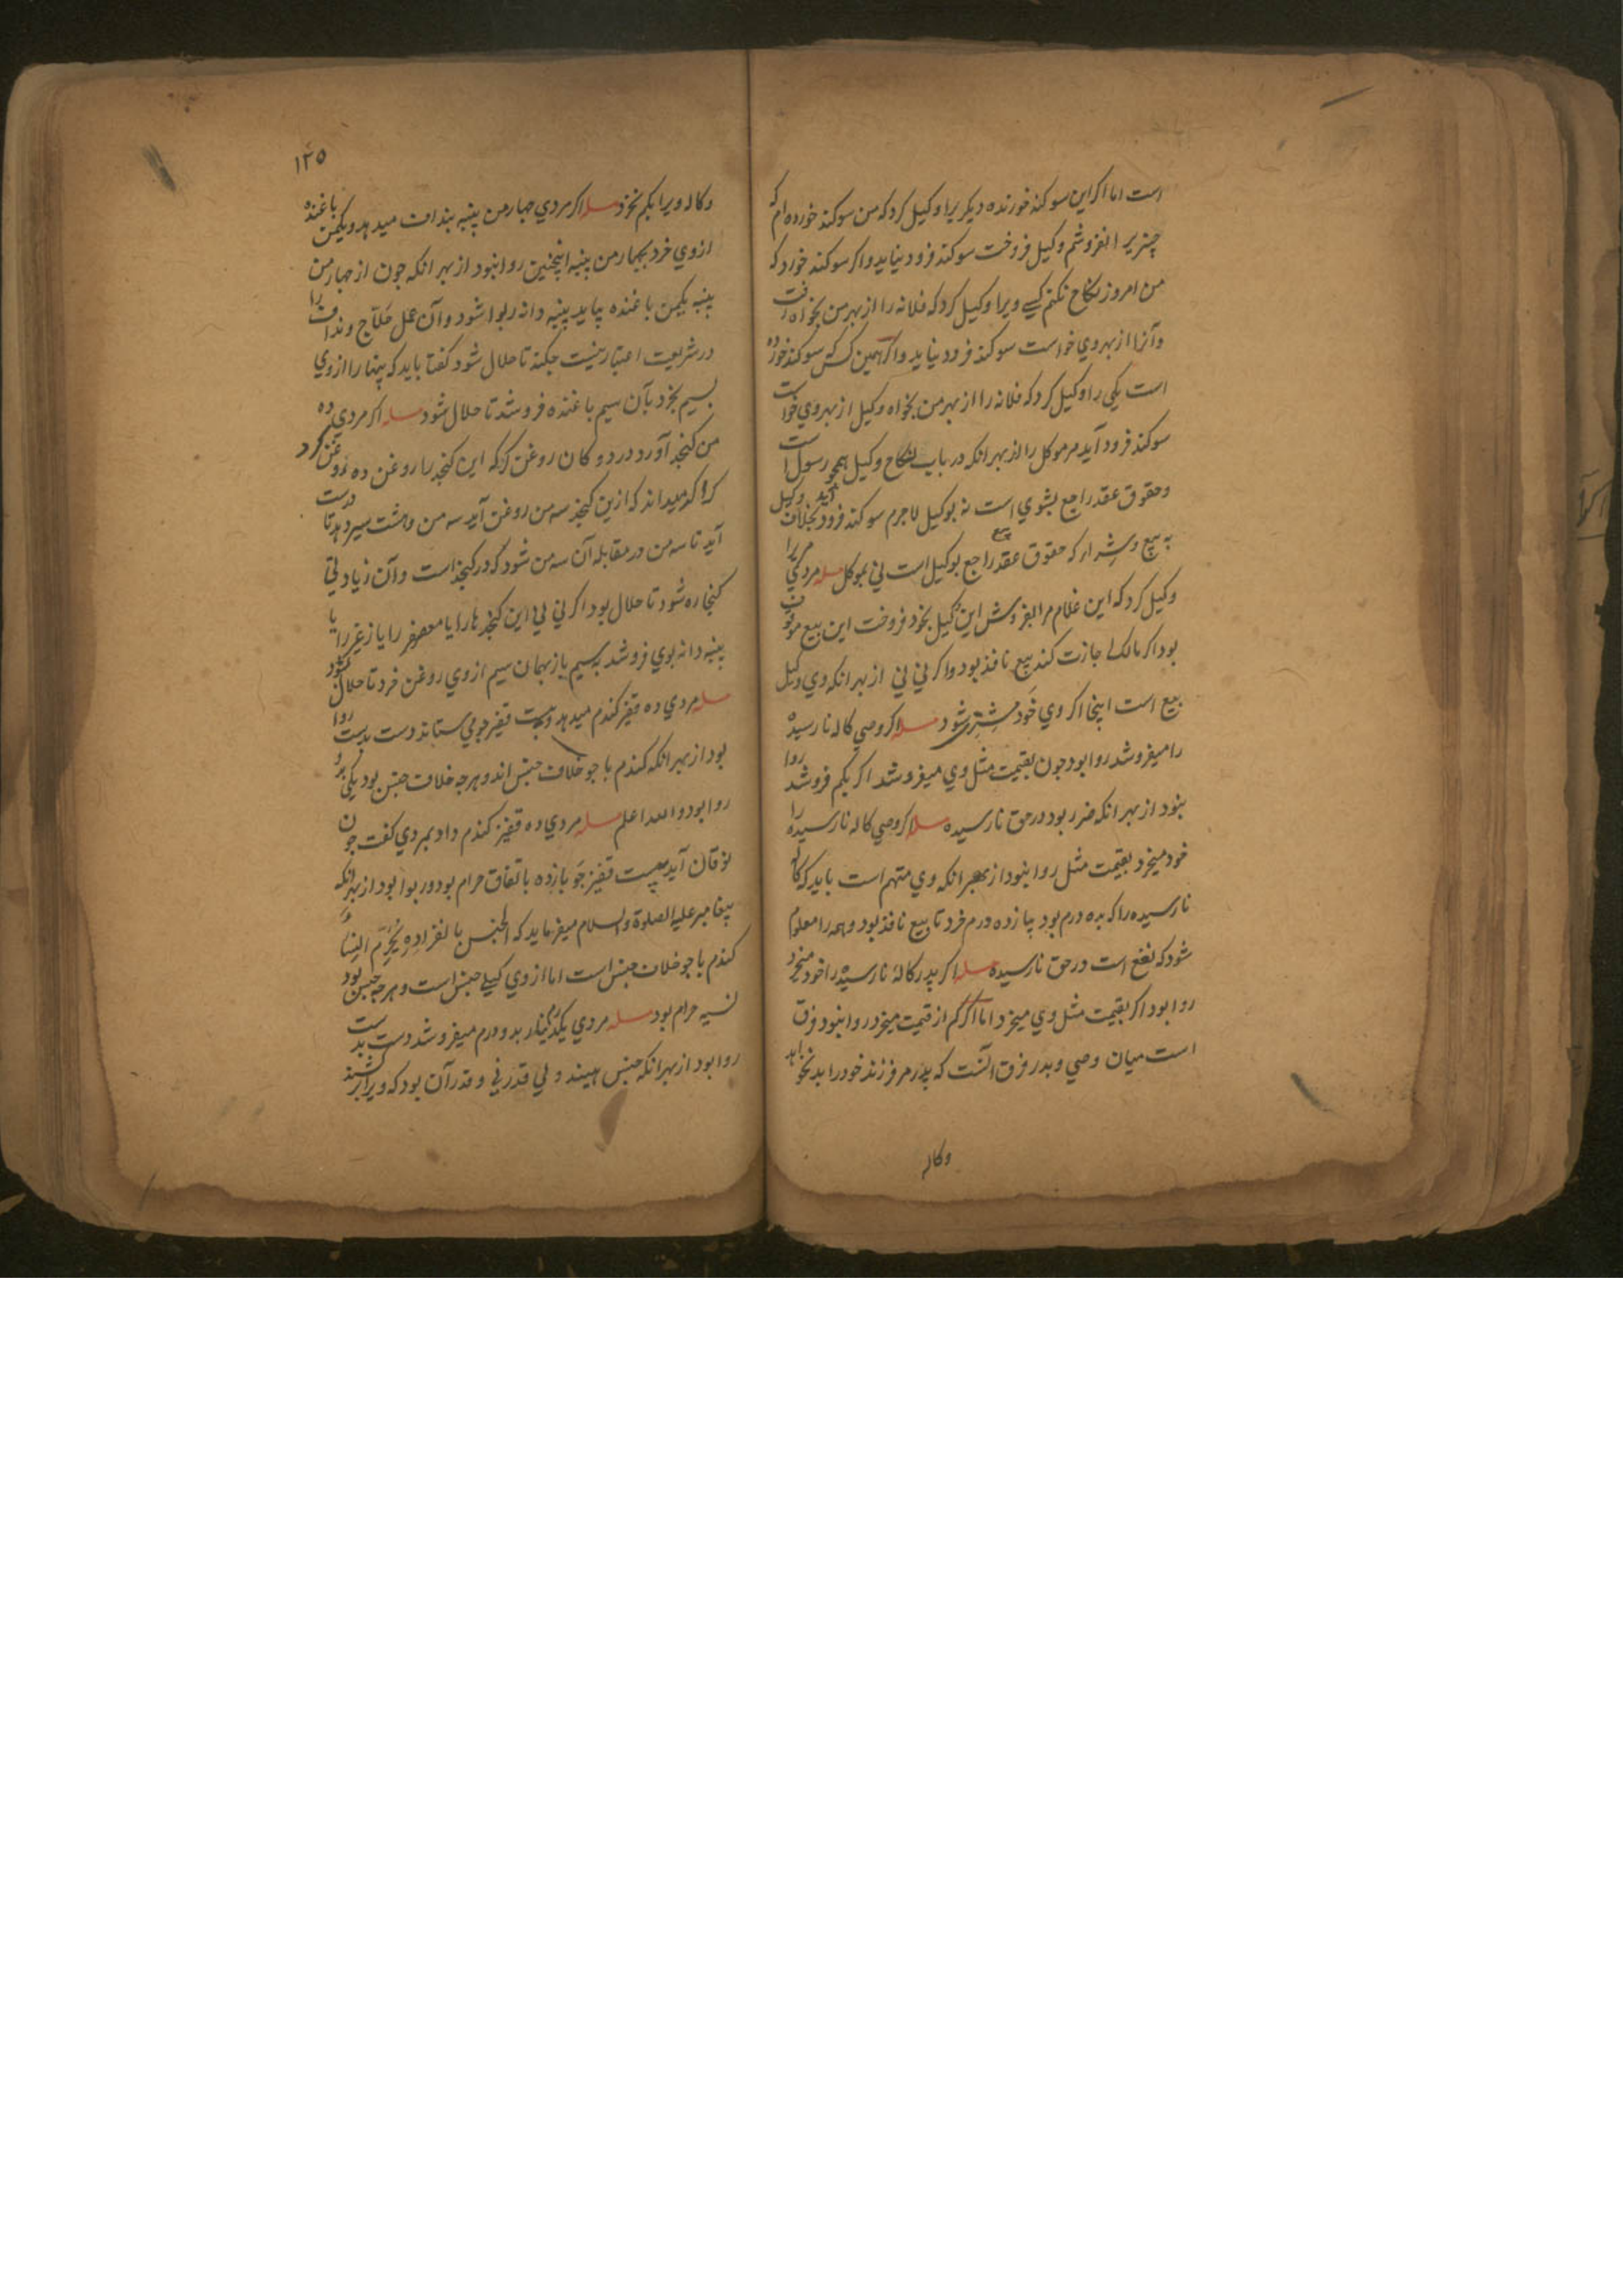 است اما اکر این سوکند خورنده دیکریرا وکیل کرد که من سوکند خورده ام که
چیزیرا نفروشم وکیل فروخت سوکند فرود نیاید واکر سوکند خورد که
من امروز نکاح نکنم کسی ویرا وکیل کرد که فلانه را از بهر من بخواه رفت
وآنرا از بهر وی خواست سوکند فرود نیاید واکر همین کس که سوکند خورده
است یکی را وکیل کرد که فلانه را از بهر من بخواه وکیل از بهر وی خواست
سوکند فرود آید مر موکل را از بهر انکه در باب نکاح وکیل همچو رسول است
وحقوق عقد راجع بشوی است نه بوکیل لاجرم سوکند فرود آید بخلاف وکیل
به بیع وشرا که حقوق عقد بیع راجع بوکیل است نی بموکل مسله مردی مردیرا
وکیل کرد که این غلام مرا بفروش این وکیل بخود فروخت این بیع موقوف
بود اکر مالک اجازت کند بیع نافذ بود واکر نی نی از بهر انکه وی وکیل
بیع است اینجا اکر وی خود مشتری شود مسله اکر وصی کاله نارسیده
را میفروشد روا بود جون بقیمت مثل وی میفروشد اکر بکم فروشد روا
نبود از بهر انکه ضرر بود در حق نارسیده مسله اکر وصی کاله نارسیده را
خود میخرد بقیمت مثل روا نبود از بهر انکه وی متهم است باید که کاله
نارسیده را که بده درم بود بپانزده درم خرد تا بیع نافذ بود وهمه را معلوم
شود که نفع است در حق نارسیده مسله اکر پدر کاله نارسیده را خود میخرد
روا بود اکر بقیمت مثل وی میخرد اما اکر کم از قیمت میخرد روا نبود فرق
است میان وصی وپدر فرق آنست که پدر مر فرزند خود را بد نخواهد
وکاله
۱۲۵
وکاله ویرا بکم نخرد مسله اکر مردی جهار من پنبه بنداف میدهد ویکمن باغنده
ازوی خرد بجهار من پنبه اینجنین روا نبود از بهر انکه جون از جهار من
پنبه یکمن باغنده بیاید پنبه دانه ربوا شود وآن عمل حلاج ونداف را
در شریعت اعتبار نیست جکند تا حلال شود کفتا باید که پنبها را ازوی
بسیم بخرد بآن سیم باغنده فروشد تا حلال شود مسله اکر مردی ده
من کنجد آورد در دوکان روغن کر که این کنجد را روغن ده روغن کرد
کر اکر میداند که ازین کنجد سه من روغن آید سه من وهشت سیر دهد تا درست
آید تا سه من در مقابله آن سه من شود که در کنجد است وآن زیادتی
کنجاره شود تا حلال بود اکر نی این کنجدها را یا معصفر را یا زغیر را یا
پنبه دانه بوی فروشد بسیم باز بهمان سیم ازوی روغن خرد تا حلال شود
مسله مردی ده قفیز کندم میدهد وبیست قفیز جو می ستاند دست بدست روا
بود از بهر انکه کندم با جو خلاف جنس اند وهرجه خلاف جنس بود یکی بدو
روا بود والله اعلم مسله مردی ده قفیز کندم داد بمردی کفت جون
نوقان آید بیست قفیز جو باز ده باتفاق حرام بود وربوا بود از بهر انکه
پیغامبر علیه الصلوة والسلام میفرماید که الجنس بانفراده یُحَرِّم النساء
کندم با جو خلاف جنس است اما ازوی کیلی جنس است وهرجه جنس بود
نسیه حرام بود مسله مردی یکدینار بدو درم میفروشد دست بدست
روا بود از بهر انکه جنس هستند ولی قدر نی وقدر آن بود که ویرا برکشند